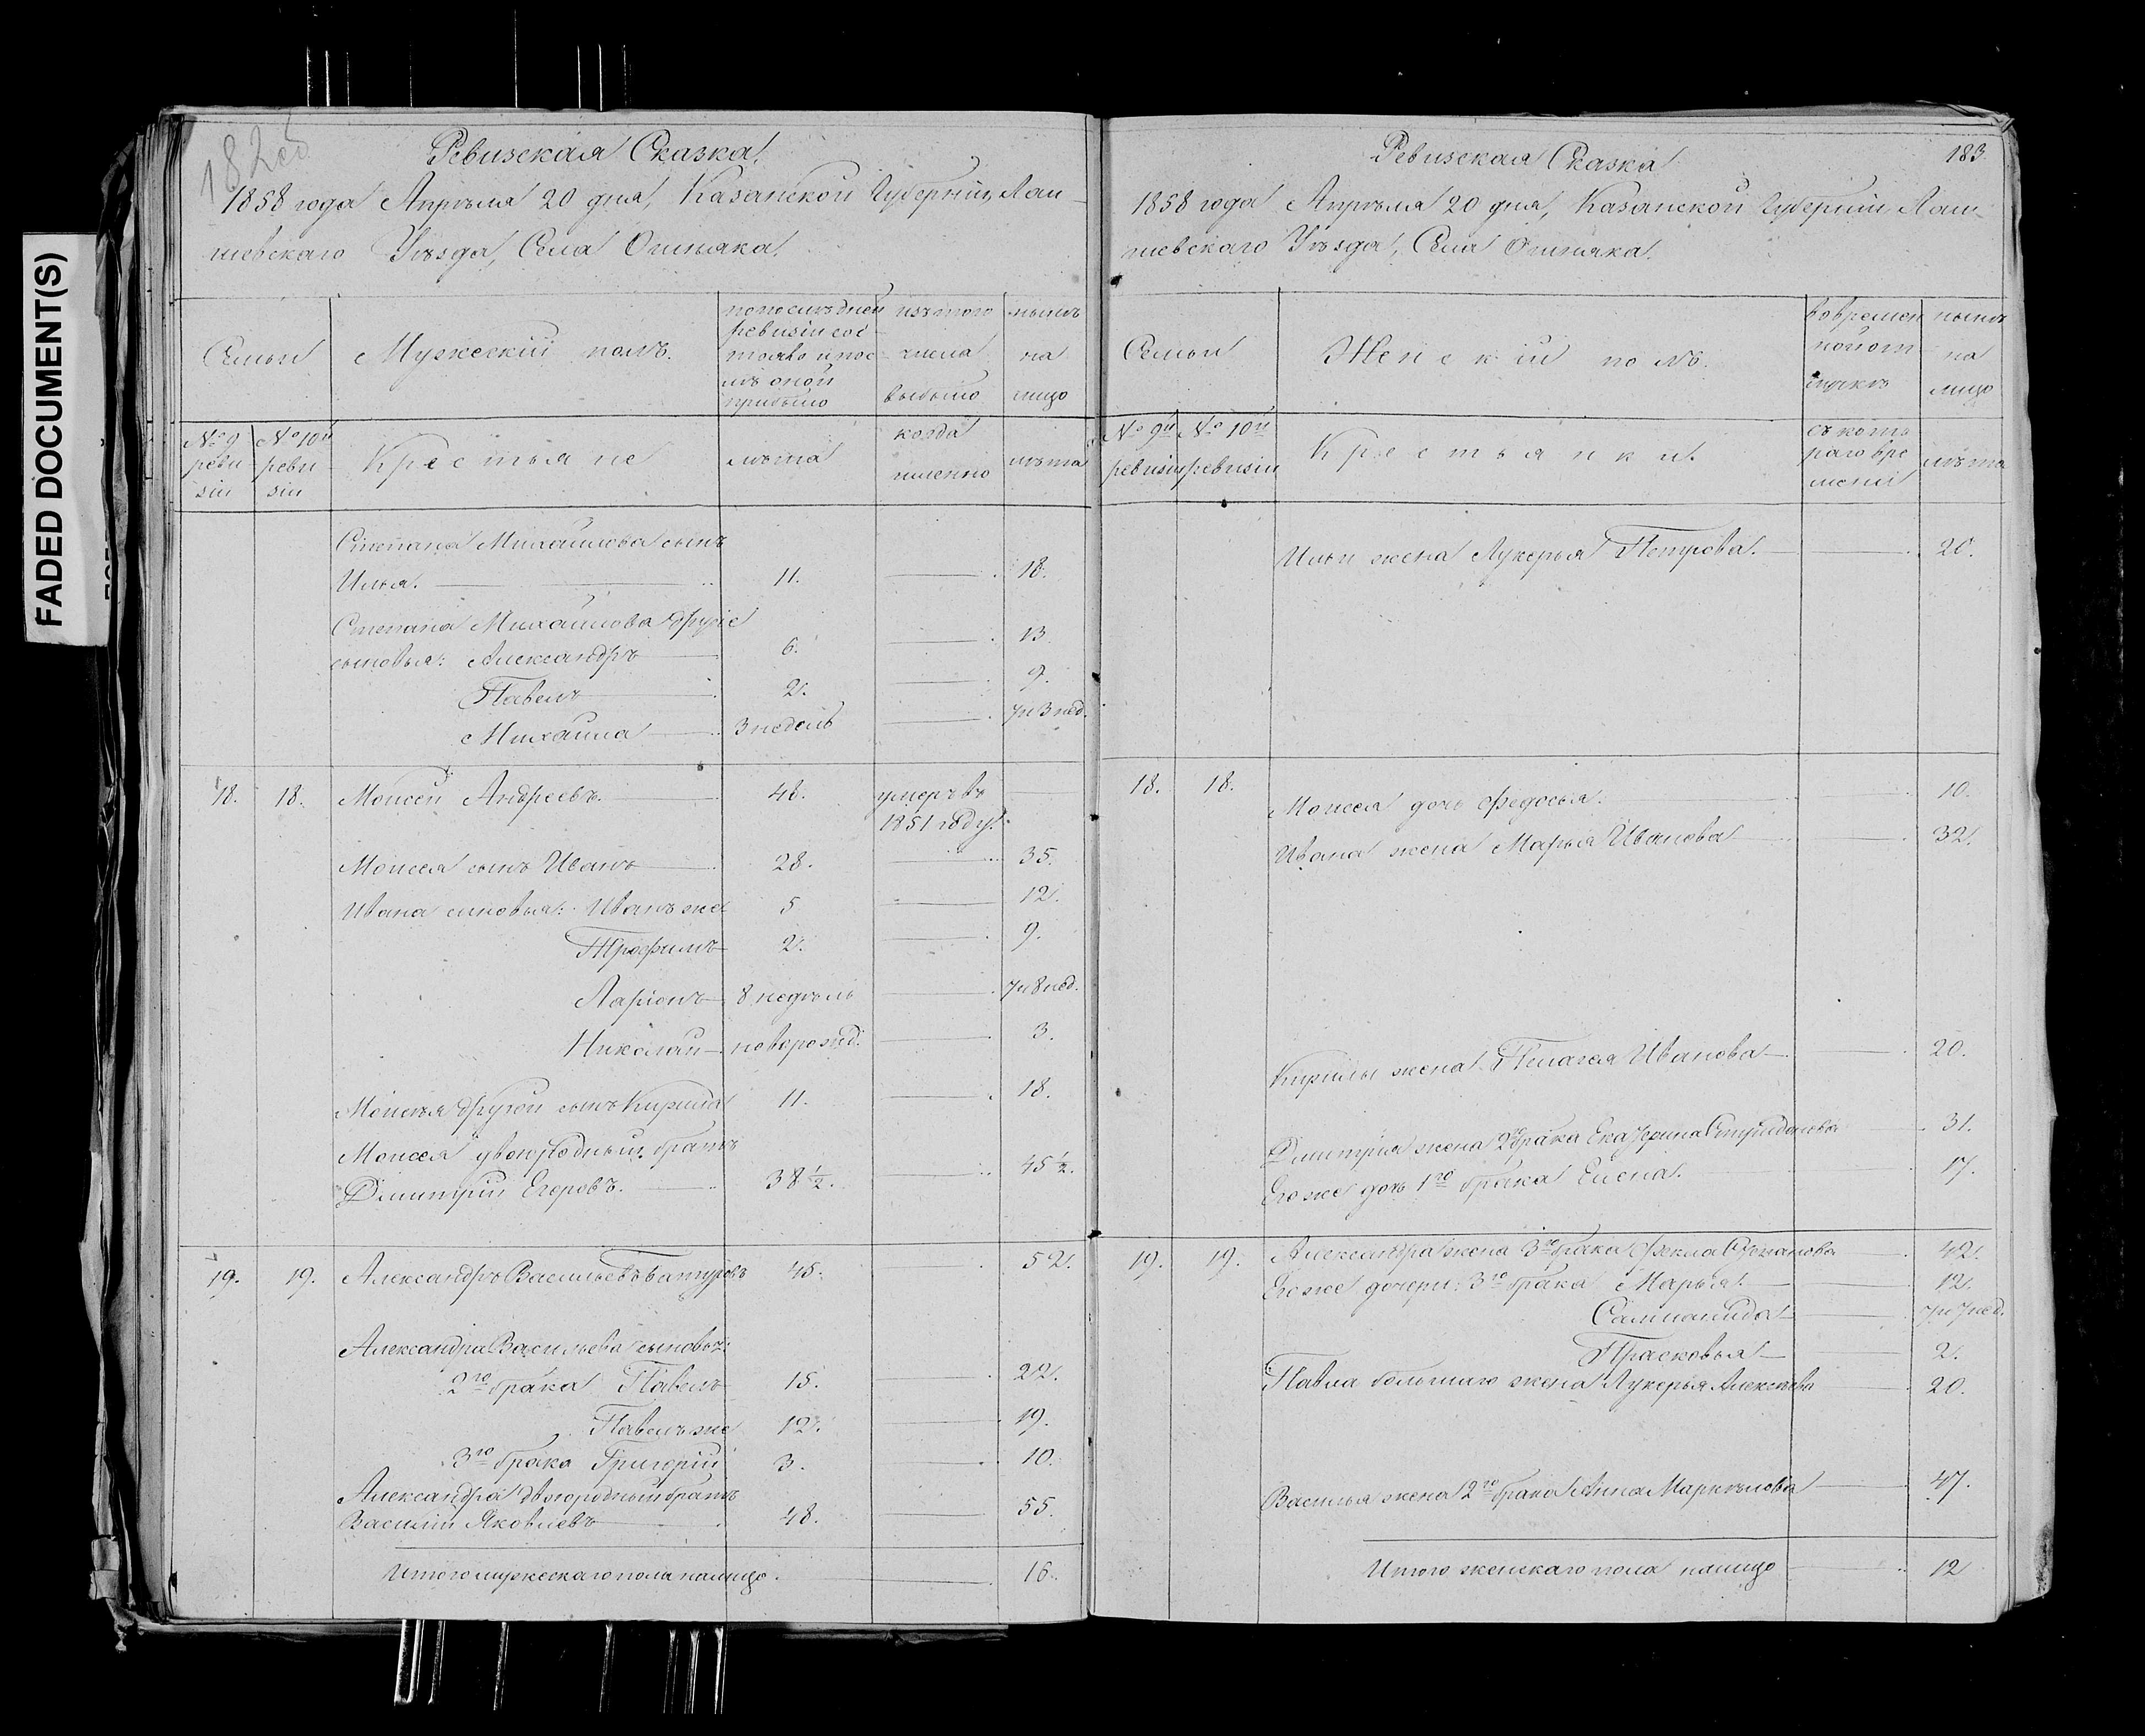 FADED DOCUMENT(S)
182об
Ревизская Сказка
1858 года Апреля 20 дня, Казанской Губерніи, Лаи-
шевскаго Уѣзда, Села Ошняка.
Семьи
Мужескій полъ.
попослѣдней
ревизіи сос
тояло и пос
лѣ оной
прибыло
изъ того
числа
выбыло
нынѣ
на
лицо
№ 9
реви
зіи
№ 10й
реви
зіи
Крестьяне
лѣта
когда
именно
лѣта
Степана Михайлова сынъ
Илья. 11. 18.
Степана Михайлова другіе
сыновья: Александръ 6. 13.
Павелъ 2. 9.
Михаила 3 недель 7 и 3 нед.
18. 18. Моисей Андреевъ. 48. умеръ въ
1851 году.
Моисея сынъ Иванъ 28. 35.
Ивана сыновья: Иванъ же 5 12.
Трофимъ 2. 9.
Ларіонъ 8 недѣль 7 и 8 нед.
Николай новорожд. 3.
Моисея другой сынъ Кирила 11. 18.
Моисея двоюродный братъ
Дмитрій Егоровъ. 38½. 45½.
19. 19. Александръ Васильевъ 45. 52.
Александра Васильева сыновья:
2го брака Павелъ 15. 22.
Павелъ же 12. 19.
3го брака Григорій 3. 10.
Александра двоюродный братъ
Василій Яковлевъ 48. 55.
Итого мужескаго пола налицо. 16.
Ревизская Сказка
183
1858 года Апрѣля 20 дня, Казанской Губерніи Лаи-
шевскаго Уѣзда, Села Ошняка.
Семьи
Женскій полъ.
вовремен
ной от
лучкѣ
нынѣ
на
лицо
№ 9й
ревизіи
№ 10й
ревизіи
Крестьянки.
съ кото
раго вре
мени
лѣта
Ильи жена Лукерья Петрова. 20.
18. 18. Моисея дочь Федосья. 10.
Ивана жена Марья Иванова 32.
Кирилы жена Пелагея Иванова 20.
Дмитрія жена 2го брака Екатерина 31.
Егоже дочь 1го брака Елена. 17.
19. 19. Александра жена 3го брака Фекла Степанова 42.
Егоже дочери: 3го брака Марья 12.
Саломанида 7 и 7 нед.
Прасковья 2.
Павла большаго жена Лукерья Алексѣева 20.
Василья жена 2го брака Анна Маркелова 47.
Итого женскаго пола налицо 12